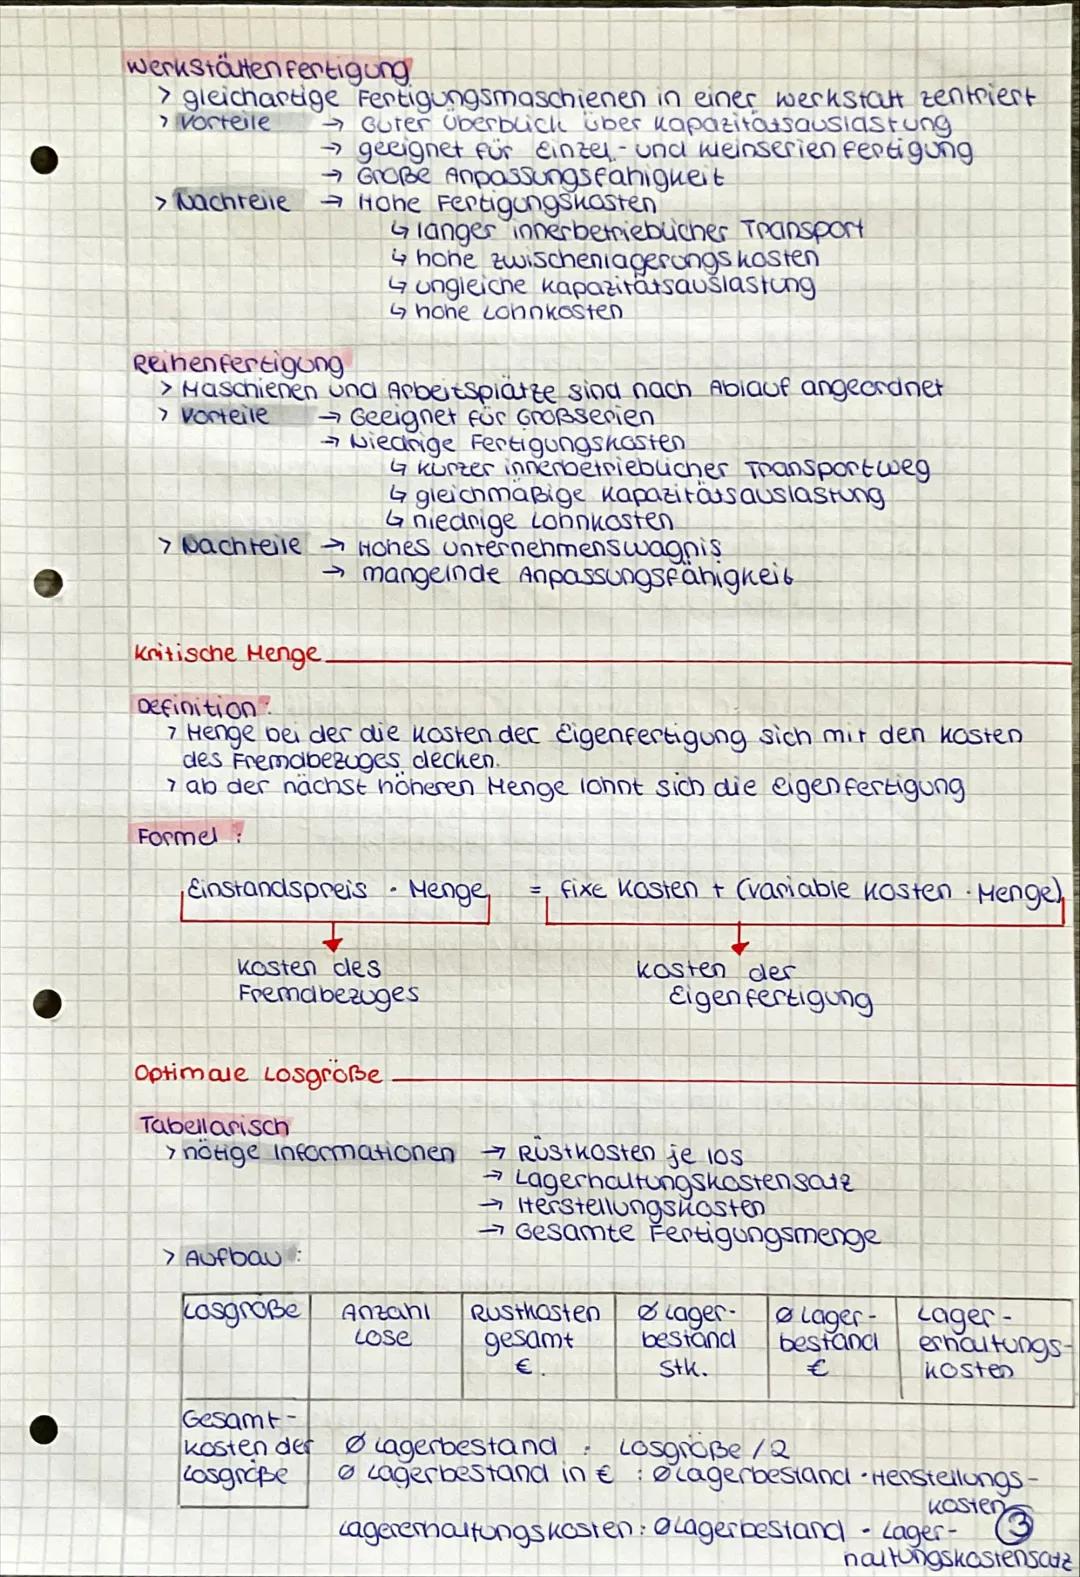 Werkstättenfertigung
> gleichartige Fertigungsmaschienen in einer Werkstatt zentriert
> Vorteile → Guter Überblick über Kapazitätsauslastung
→ geeignet für Einzel- und Kleinserienfertigung
→ Große Anpassungsfähigkeit
> Nachteile → Hohe Fertigungskosten
↳ langer innerbetrieblicher Transport
↳ hohe Zwischenlagerungskosten
↳ ungleiche Kapazitätsauslastung
↳ hohe Lohnkosten
Reihenfertigung
> Maschienen und Arbeitsplätze sind nach Ablauf angeordnet
> Vorteile → Geeignet für Großserien
→ Niedrige Fertigungskosten
↳ kurzer innerbetrieblicher Transportweg
↳ gleichmäßige Kapazitätsauslastung
↳ niedrige Lohnkosten
> Nachteile → Hohes Unternehmenswagnis
→ mangelnde Anpassungsfähigkeit
Kritische Menge
Definition:
> Menge bei der die Kosten der Eigenfertigung sich mit den Kosten
des Fremdbezuges decken.
> ab der nächst höheren Menge lohnt sich die Eigenfertigung
Formel:
Einstandspreis · Menge = fixe Kosten + (variable Kosten · Menge)
Kosten des Kosten der
Fremdbezuges Eigenfertigung
Optimale Losgröße
Tabellarisch
> nötige Informationen → Rüstkosten je los
→ Lagerhaltungskostensatz
→ Herstellungskosten
→ Gesamte Fertigungsmenge
> Aufbau:
Losgröße Anzahl Rüstkosten Ø Lager- Ø Lager- Lager-
Lose gesamt bestand bestand erhaltungs-
€. Stk. € kosten
Gesamt-
kosten der Ø Lagerbestand : Losgröße / 2
Losgröße Ø Lagerbestand in € : Ø Lagerbestand · Herstellungs-
kosten
Lagererhaltungskosten: Ø Lagerbestand · Lager- 3
haltungskostensatz